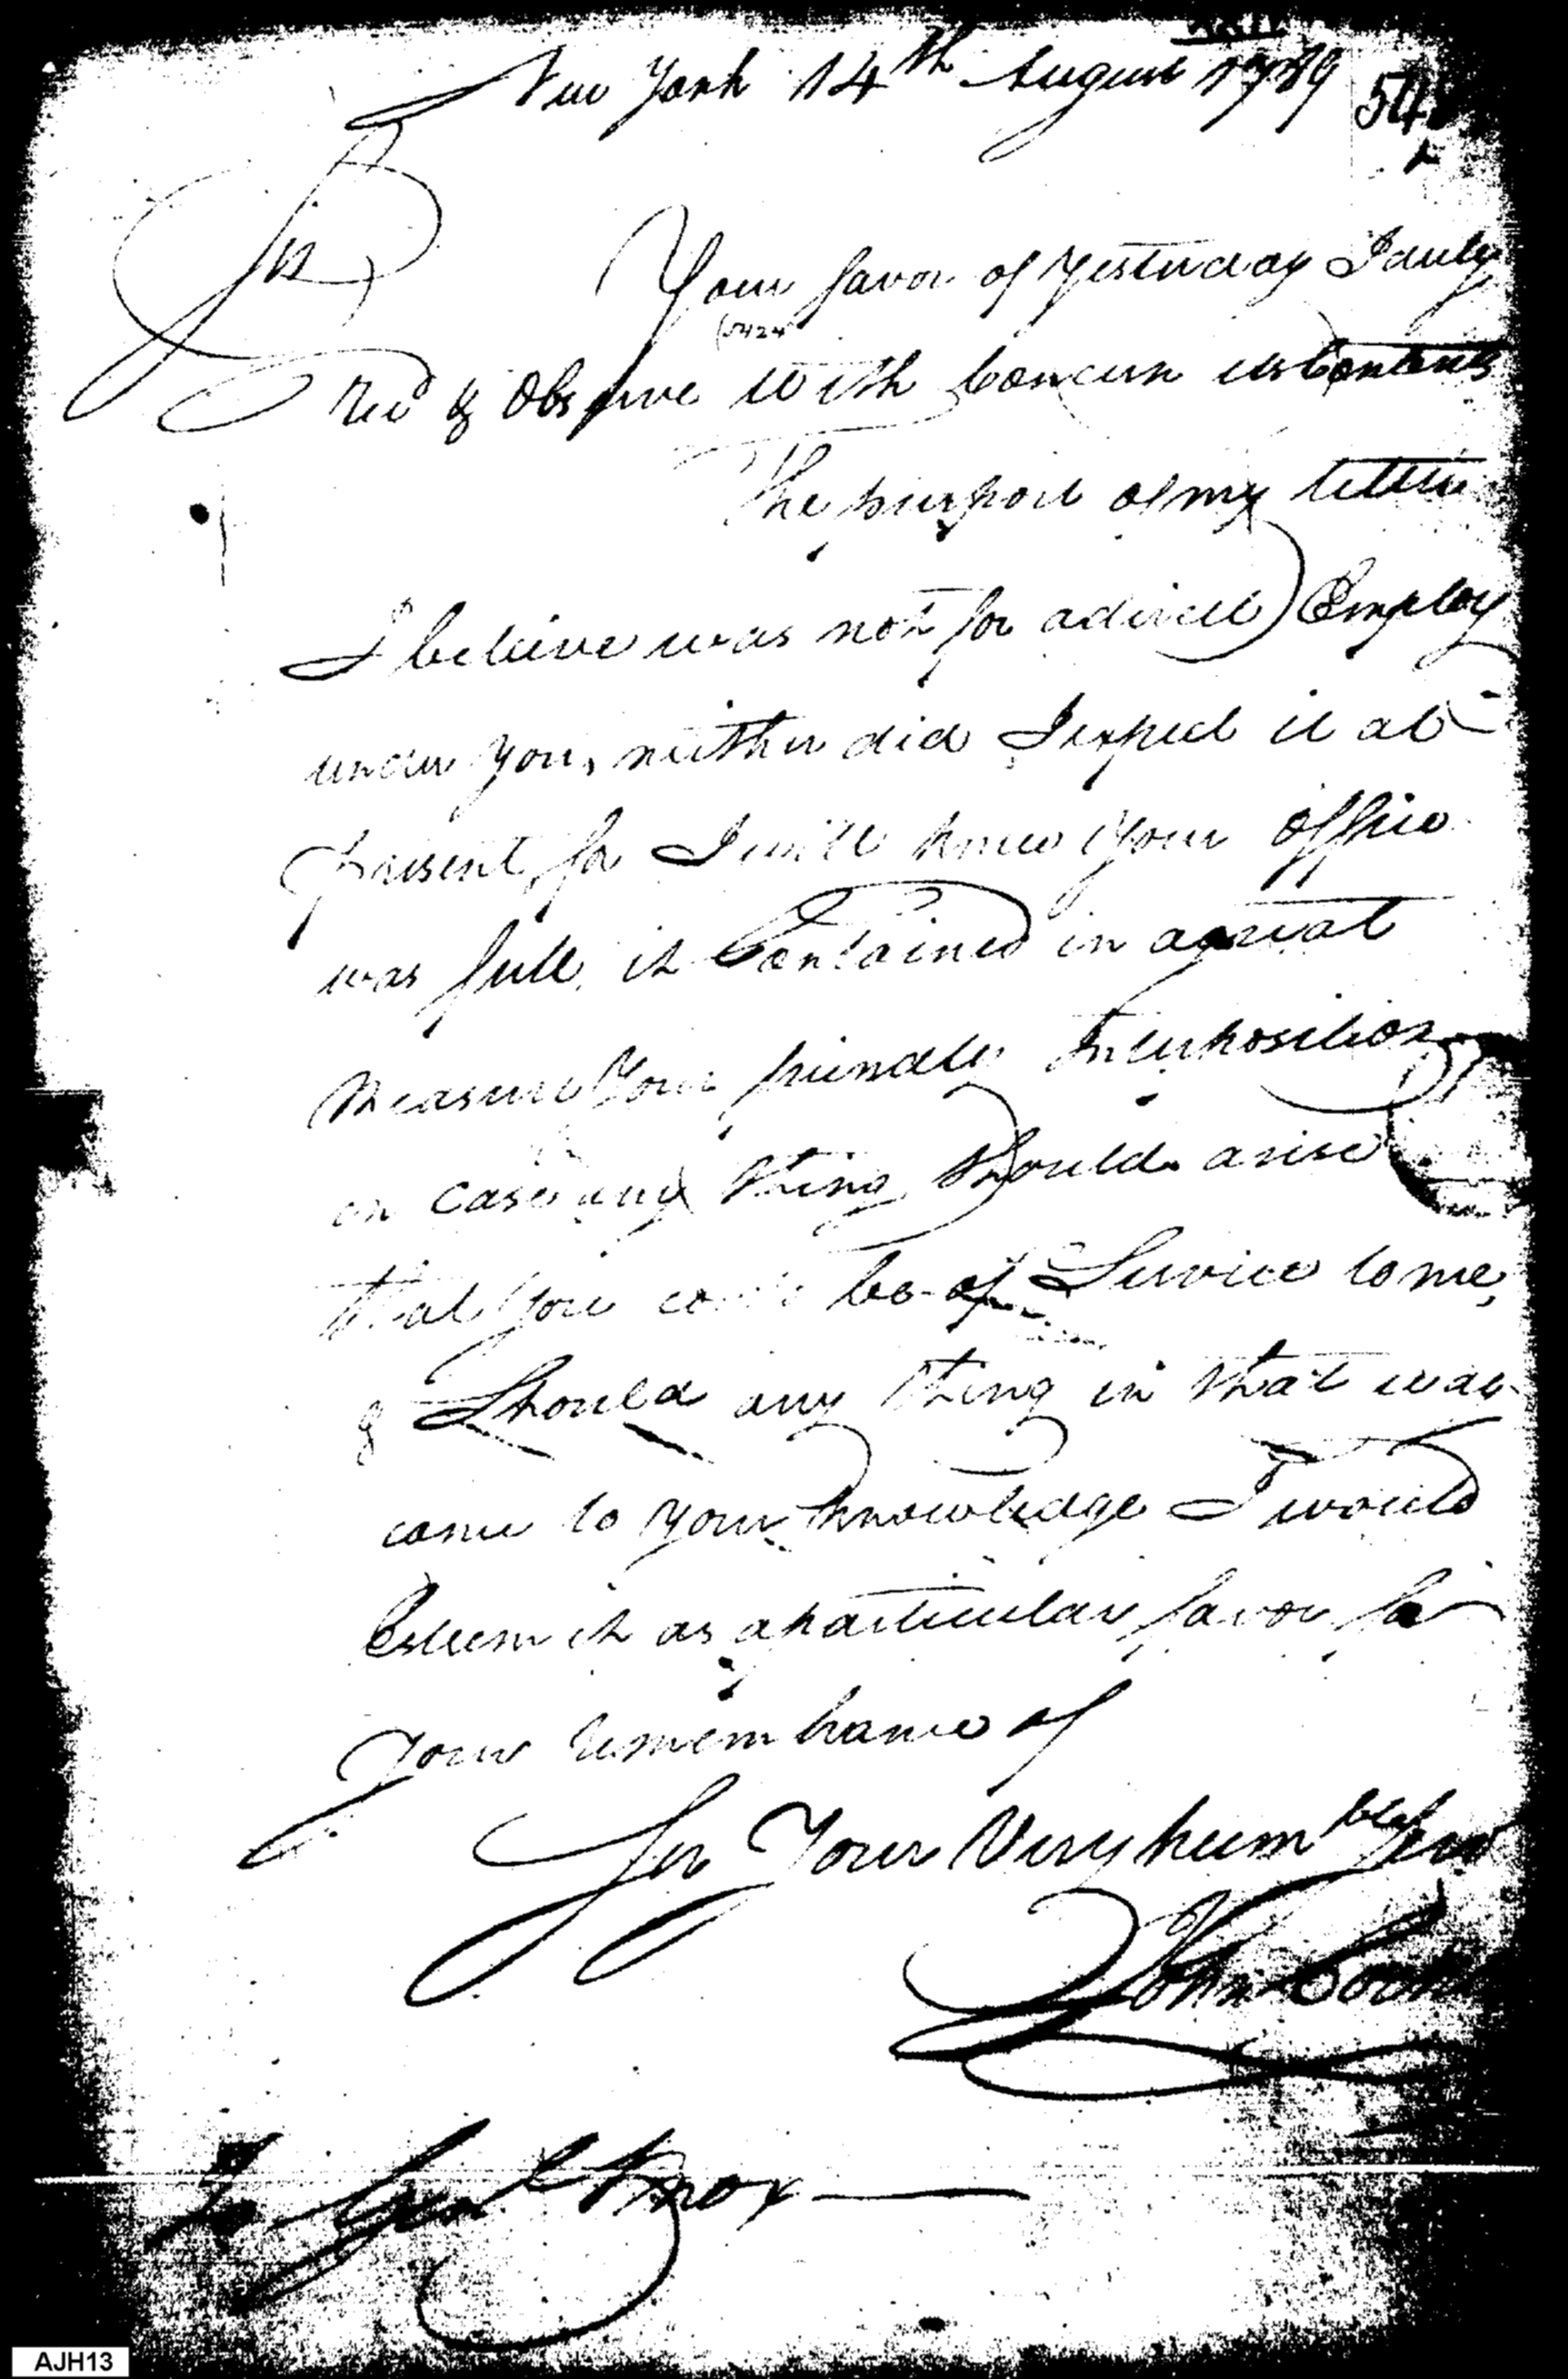 New York 14th August 1789
54
Sir
Your favor of Yesterday I duly
Recd & Observe with Concern its Contents
The purport of my letter
I believe was not for a direct Employ
under You, neither did I expect it at
present, for I well knew Your Office
was full, it Contained in a great
Measure Your friendly Interposition
in case any thing Should arise
that You could be of Service to me,
& Should any thing in that way
come to Your knowledge I would
Esteem it as a particular favor for
Your remembrance of
Sir Your Very humble Serv
John
To Genl Knox
AJH13